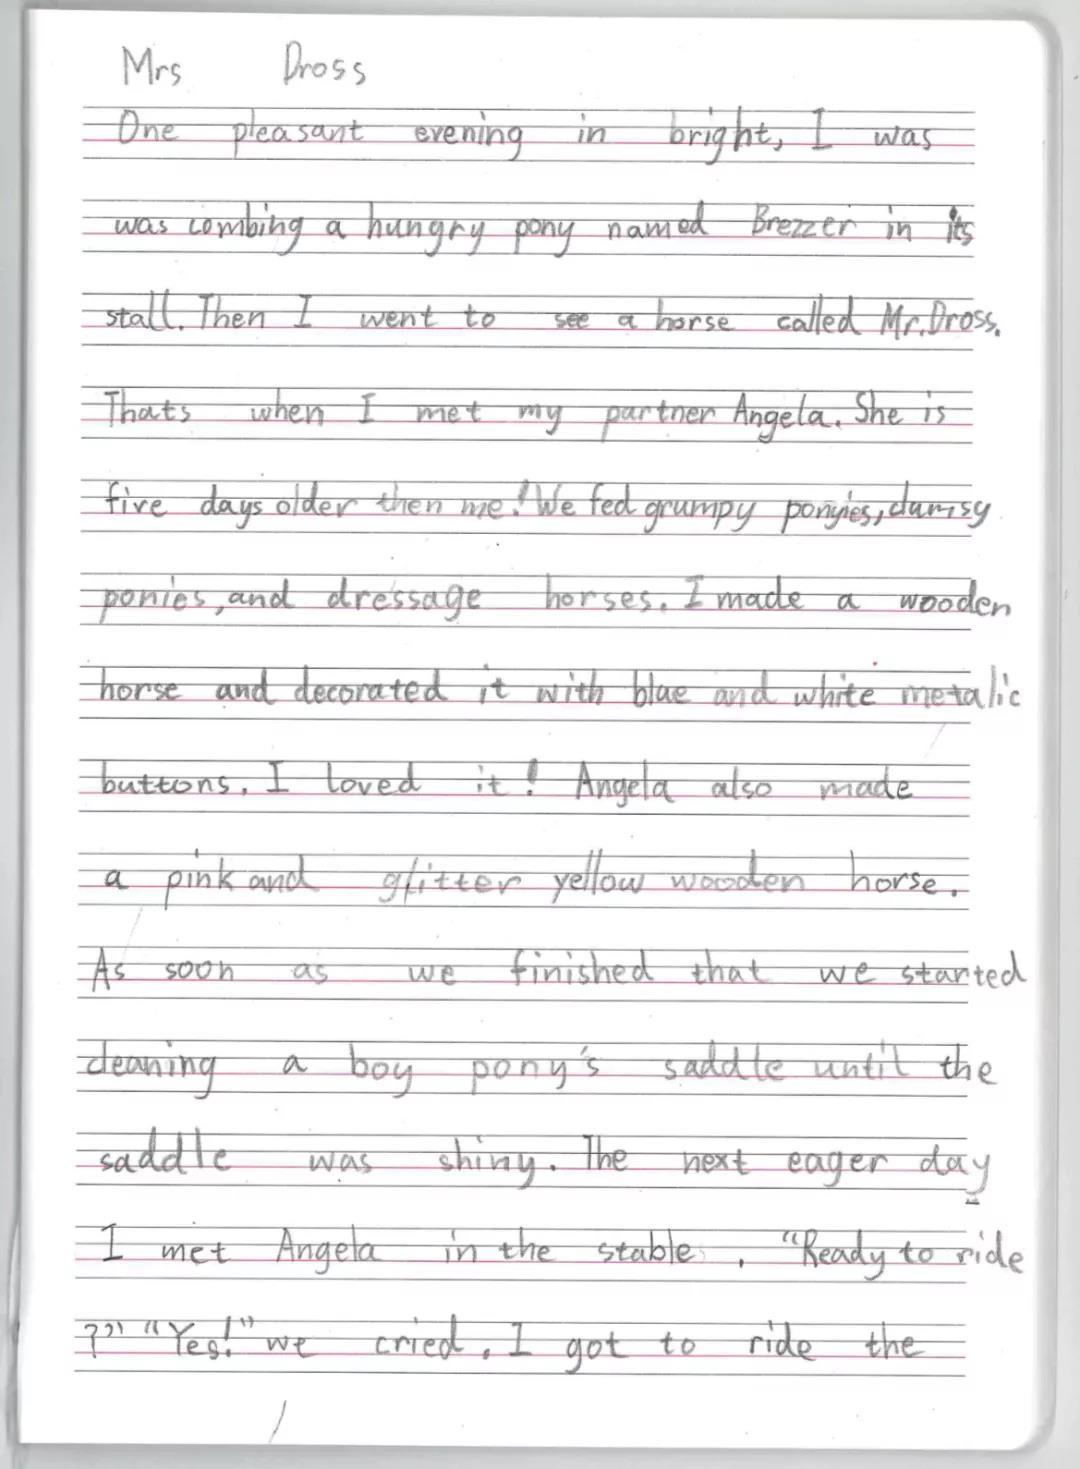 Mrs Dross
One pleasant evening in bright, I was
was combing a hungry pony named Brezzer in its
stall. Then I went to see a horse called Mr.Dross.
Thats when I met my partner Angela. She is
five days older then me! We fed grumpy ponyies, clumsy
ponies, and dressage horses. I made a wooden
horse and decorated it with blue and white metalic
buttons. I loved it! Angela also made
a pink and glitter yellow wooden horse.
As soon as we finished that we started
cleaning a boy pony's saddle until the
saddle was shiny. The next eager day
I met Angela in the stable. "Ready to ride
?" "Yes!" we cried. I got to ride the